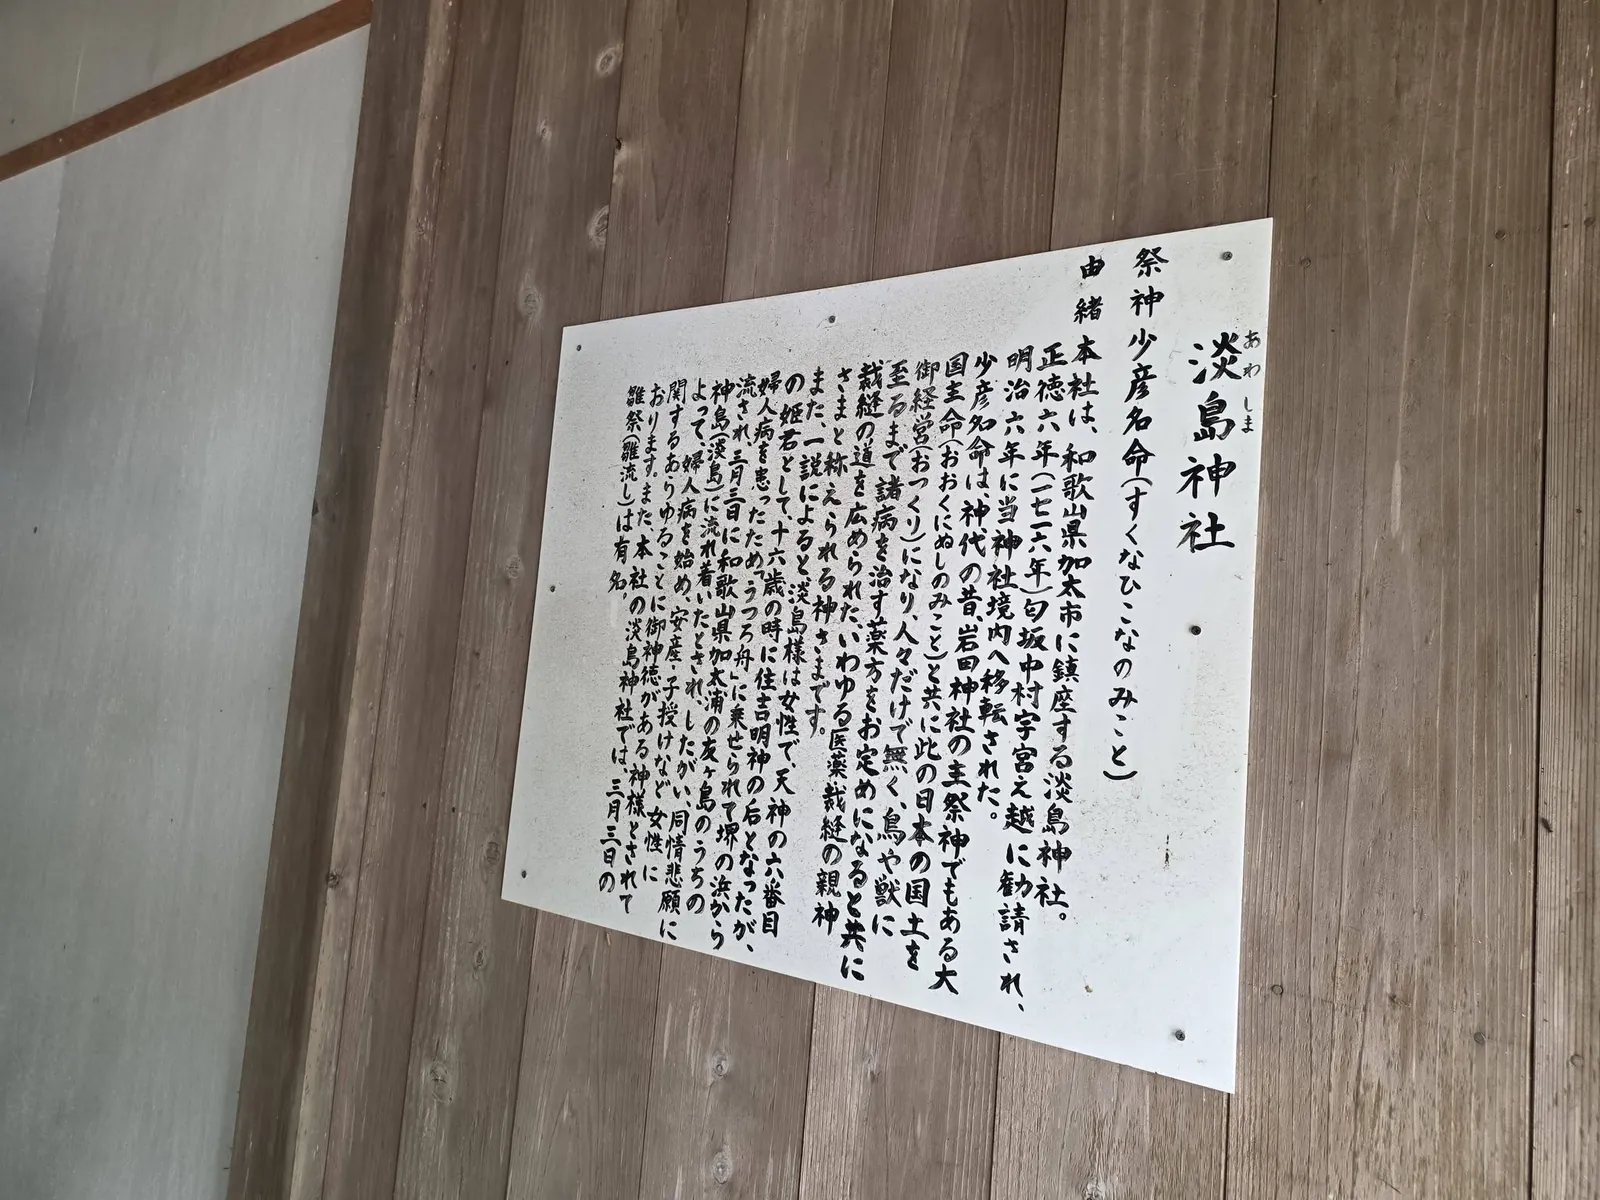 淡島神社
あわ しま
祭神 少彦名命(すくなひこなのみこと)
由緒 本社は、和歌山県加太市に鎮座する淡島神社。
正徳六年(一七一六年)匂坂中村字宮え越に勧請され、
明治六年に当神社境内へ移転された。
少彦名命は、神代の昔、岩田神社の主祭神でもある大
国主命(おおくにぬしのみこと)と共に此の日本の国土を
御経営(おつくり)になり、人々だけで無く、鳥や獣に
至るまで諸病を治す薬方をお定めになると共に
裁縫の道を広められた、いわゆる医薬、裁縫の親神
さまと称えられる神さまです。
また、一説によると、淡島様は女性で、天神の六番目
の姫君として、十六歳の時に住吉明神の后となったが、
婦人病を患ったため「うつろ舟」に乗せられて堺の浜から
流され、三月三日に和歌山県加太浦の友ヶ島のうちの
神島(淡島)に流れ着いたとされ、したがい、同情悲願に
よって、婦人病を始め、安産・子授けなど女性に
関するあらゆることに御神徳がある神様とされて
おります。また、本社の淡島神社では、三月三日の
雛祭(雛流し)は有名。